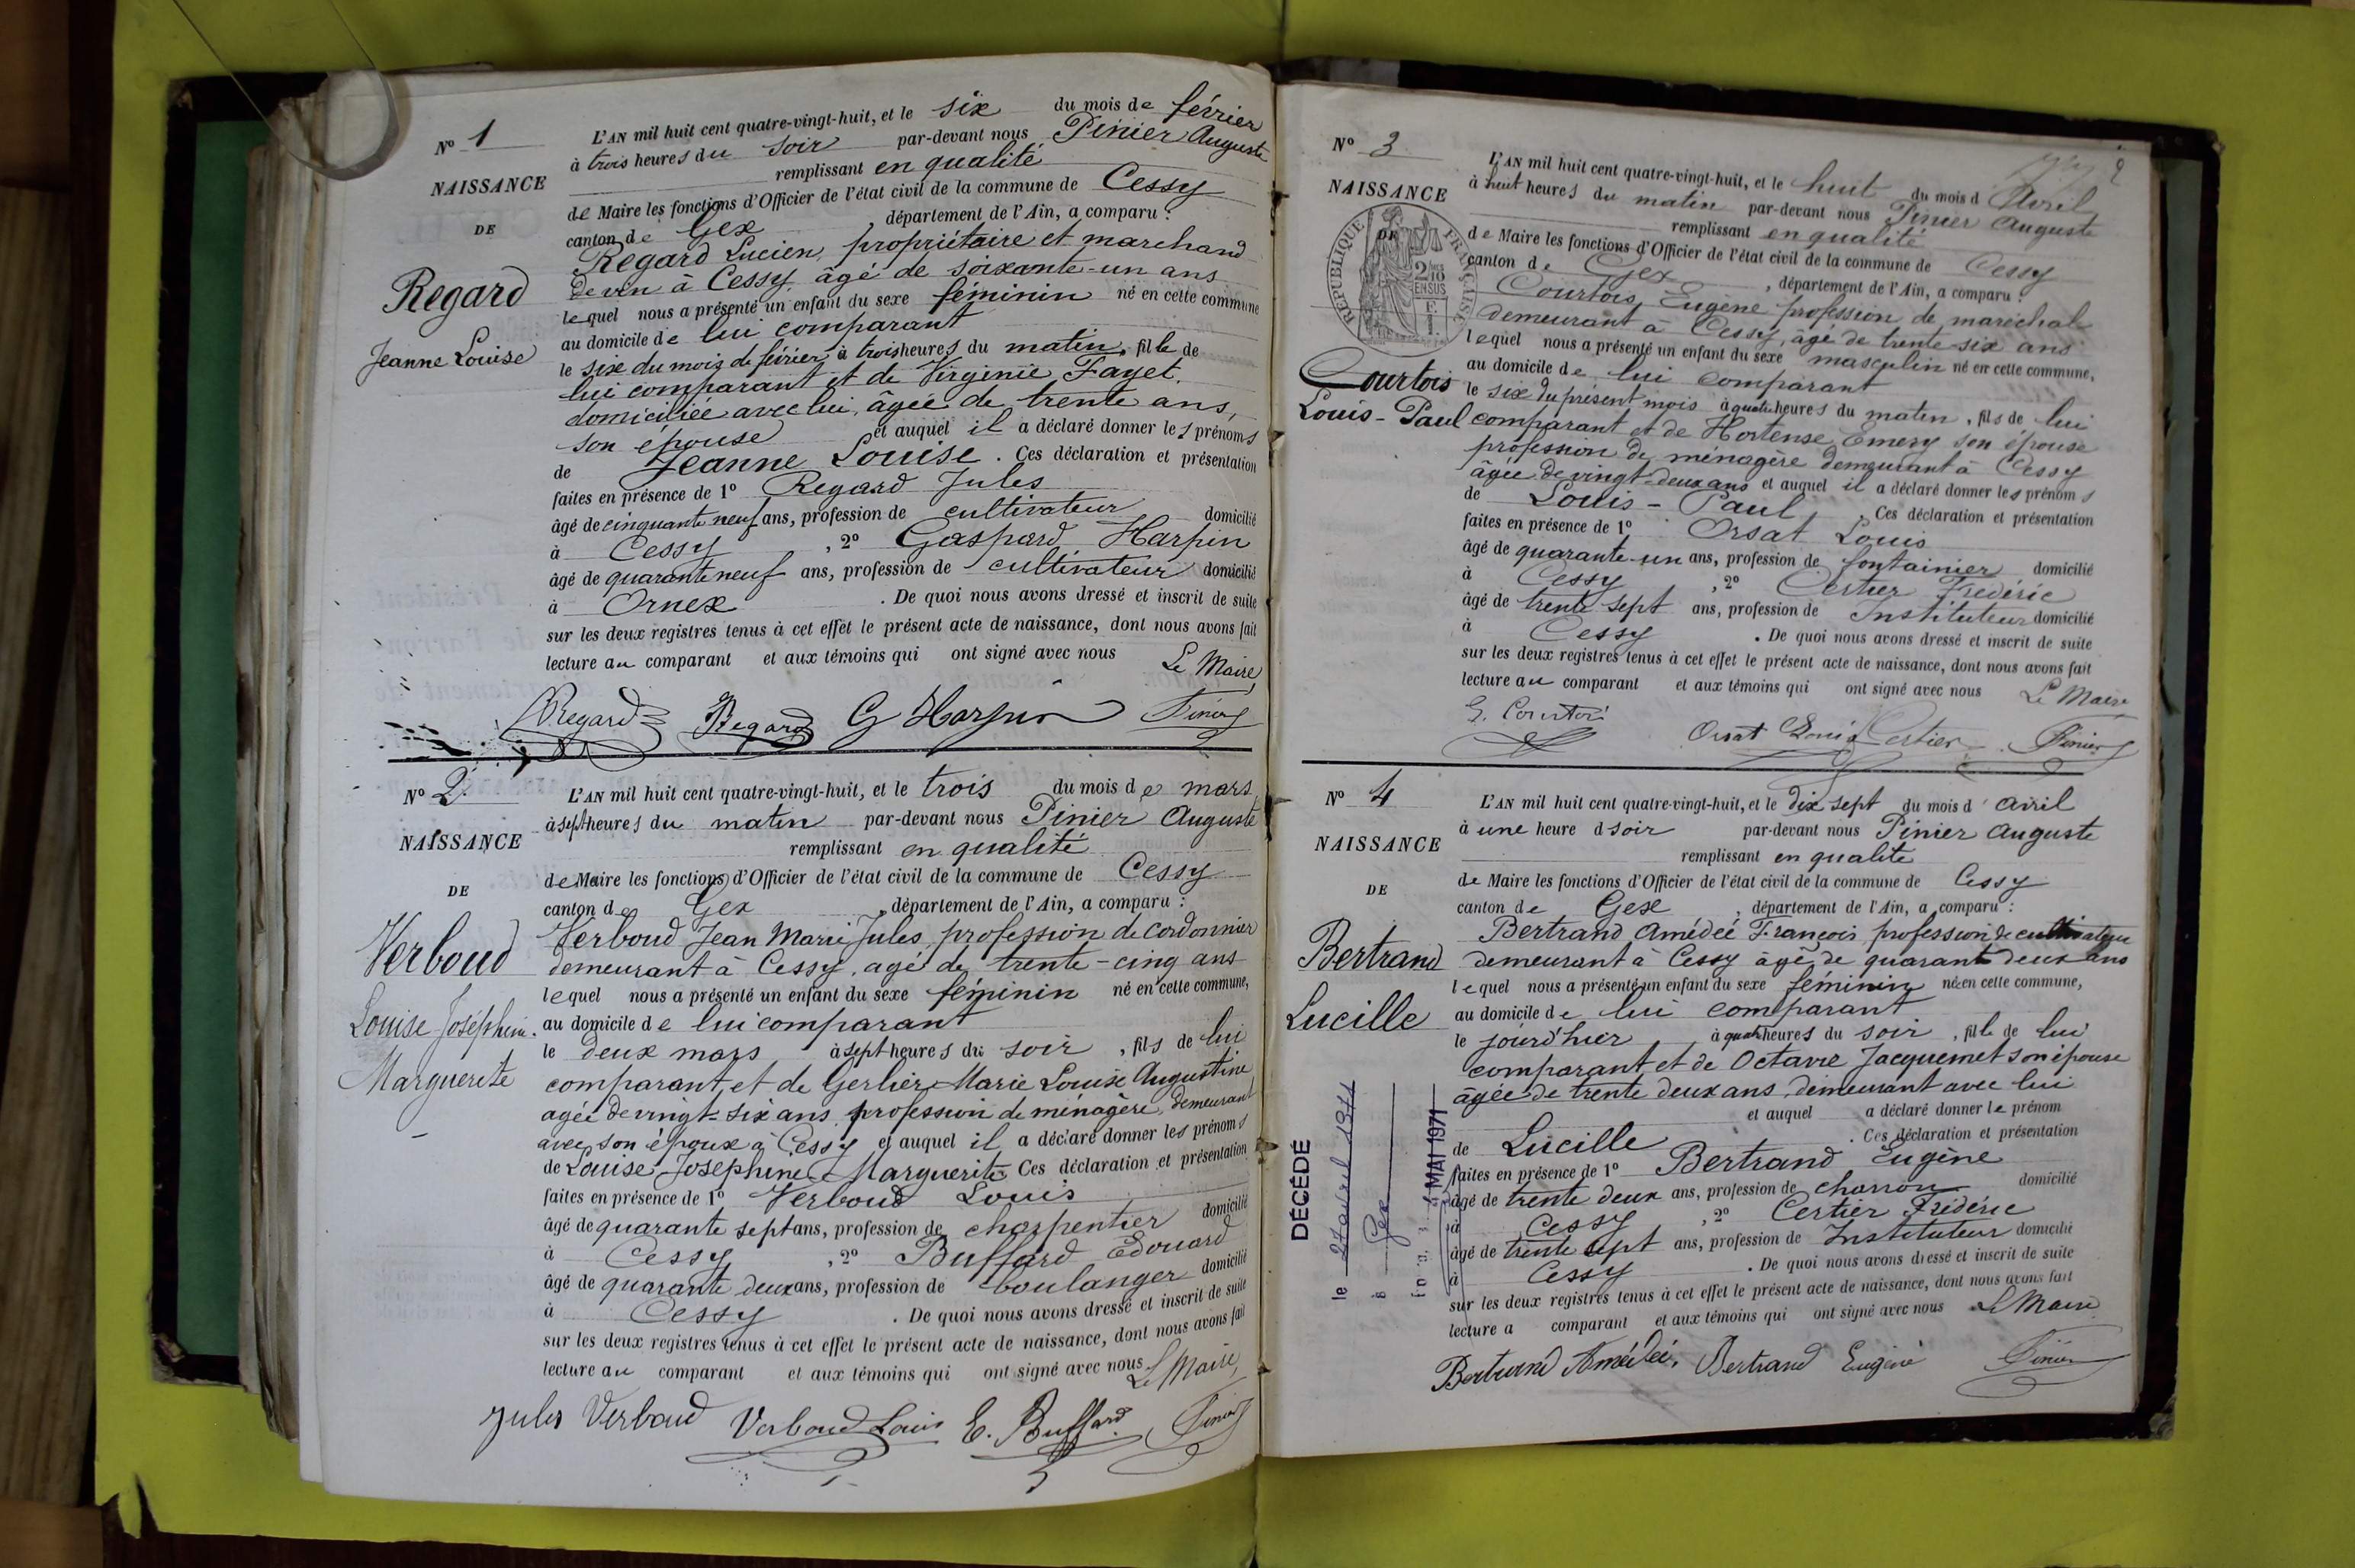 N° 1
NAISSANCE
DE
Regard
Jeanne Louise
L'AN mil huit cent quatre-vingt-huit, et le six du mois de février
à trois heures du soir par-devant nous Pinier Auguste
remplissant en qualité
de Maire les fonctions d'Officier de l'état civil de la commune de Cessy
canton de Gex, département de l'Ain, a comparu :
Regard Lucien, propriétaire et marchand
de vin à Cessy, âgé de soixante-un ans
lequel nous a présenté un enfant du sexe féminin né en cette commune
au domicile de lui comparant
le six du mois de février, à trois heures du matin, fille de
lui comparant et de Virginie Fayet,
domiciliée avec lui, âgée de trente ans,
son épouse et auquel il a déclaré donner les prénoms
de Jeanne Louise. Ces déclaration et présentation
faites en présence de 1° Regard Jules
âgé de cinquante neuf ans, profession de cultivateur domicilié
à Cessy, 2° Gaspard Harpin
âgé de quarante neuf ans, profession de cultivateur domicilié
à Ornex. De quoi nous avons dressé et inscrit de suite
sur les deux registres tenus à cet effet le présent acte de naissance, dont nous avons fait
lecture au comparant et aux témoins qui ont signé avec nous Le Maire,
Regard Regard G Harpin Pinier
N° 2.
NAISSANCE
DE
Verboud
Louise Joséphine.
Marguerite
L'AN mil huit cent quatre-vingt-huit, et le trois du mois de mars
à sept heures du matin par-devant nous Pinier Auguste
remplissant en qualité
de Maire les fonctions d'Officier de l'état civil de la commune de Cessy
canton de Gex, département de l'Ain, a comparu :
Verboud Jean Marie Jules, profession de cordonnier
demeurant à Cessy, agé de trente-cinq ans
lequel nous a présenté un enfant du sexe féminin né en cette commune,
au domicile de lui comparant
le deux mars à sept heures du soir, fils de lui
comparant, et de Gerlier Marie Louise Augustine
agée de vingt-six ans, profession de ménagère, demeurant
avec son époux à Cessy et auquel il a déclaré donner les prénoms
de Louise Joséphine Marguerite Ces déclaration et présentation
faites en présence de 1° Verboud Louis
âgé de quarante sept ans, profession de charpentier domicilié
à Cessy, 2° Buffard Edouard
âgé de quarante deux ans, profession de boulanger domicilié
à Cessy. De quoi nous avons dressé et inscrit de suite
sur les deux registres tenus à cet effet le présent acte de naissance, dont nous avons fait
lecture au comparant et aux témoins qui ont signé avec nous Le Maire,
Jules Verboud Verboud Louis E. Buffard. Pinier
2
N° 3
NAISSANCE
DE
RÉPUBLIQUE FRANÇAISE
2/10 EN SUS
Courtois
Louis-Paul
L'AN mil huit cent quatre-vingt-huit, et le huit du mois d'Avril
à huit heures du matin par-devant nous Pinier Auguste
remplissant en qualité
de Maire les fonctions d'Officier de l'état civil de la commune de Cessy
canton de Gex, département de l'Ain, a comparu :
Courtois Eugène profession de maréchal
demeurant à Cessy, âgé de trente-six ans
lequel nous a présenté un enfant du sexe masculin né en cette commune,
au domicile de lui comparant
le six du présent mois à quatre heures du matin, fils de lui
comparant et de Hortense Emery son épouse
profession de ménagère demeurant à Cessy
âgée de vingt-deux ans et auquel il a déclaré donner les prénoms
de Louis-Paul. Ces déclaration et présentation
faites en présence de 1° Orsat Louis
âgé de quarante-un ans, profession de fontainier domicilié
à Cessy, 2° Certier Frédéric
âgé de trente sept ans, profession de Instituteur domicilié
à Cessy. De quoi nous avons dressé et inscrit de suite
sur les deux registres tenus à cet effet le présent acte de naissance, dont nous avons fait
lecture au comparant et aux témoins qui ont signé avec nous Le Maire
E. Courtois Orsat Louis Certier Pinier
N° 4
NAISSANCE
DE
Bertrand
Lucille
DÉCÉDÉ
le 27 avril 1971
à Gex
4 MAI 1971
L'AN mil huit cent quatre-vingt-huit, et le dix sept du mois d'avril
à une heure d soir par-devant nous Pinier Auguste
remplissant en qualité
de Maire les fonctions d'Officier de l'état civil de la commune de Cessy
canton de Gex, département de l'Ain, a comparu :
Bertrand Amédée François profession de cultivateur
demeurant à Cessy âgé de quarante deux ans
lequel nous a présenté un enfant du sexe féminin né en cette commune,
au domicile de lui comparant
le jourd'hier à quatre heures du soir, fille de lui
comparant et de Octavie Jacquemet son épouse
âgée de trente deux ans, demeurant avec lui
et auquel a déclaré donner le prénom
de Lucille. Ces déclaration et présentation
faites en présence de 1° Bertrand Eugène
âgé de trente deux ans, profession de charron domicilié
à Cessy, 2° Certier Frédéric
âgé de trente sept ans, profession de Instituteur domicilié
à Cessy. De quoi nous avons dressé et inscrit de suite
sur les deux registres tenus à cet effet le présent acte de naissance, dont nous avons fait
lecture a comparant et aux témoins qui ont signé avec nous Le Maire
Bertrand Amédée, Bertrand Eugène Pinier